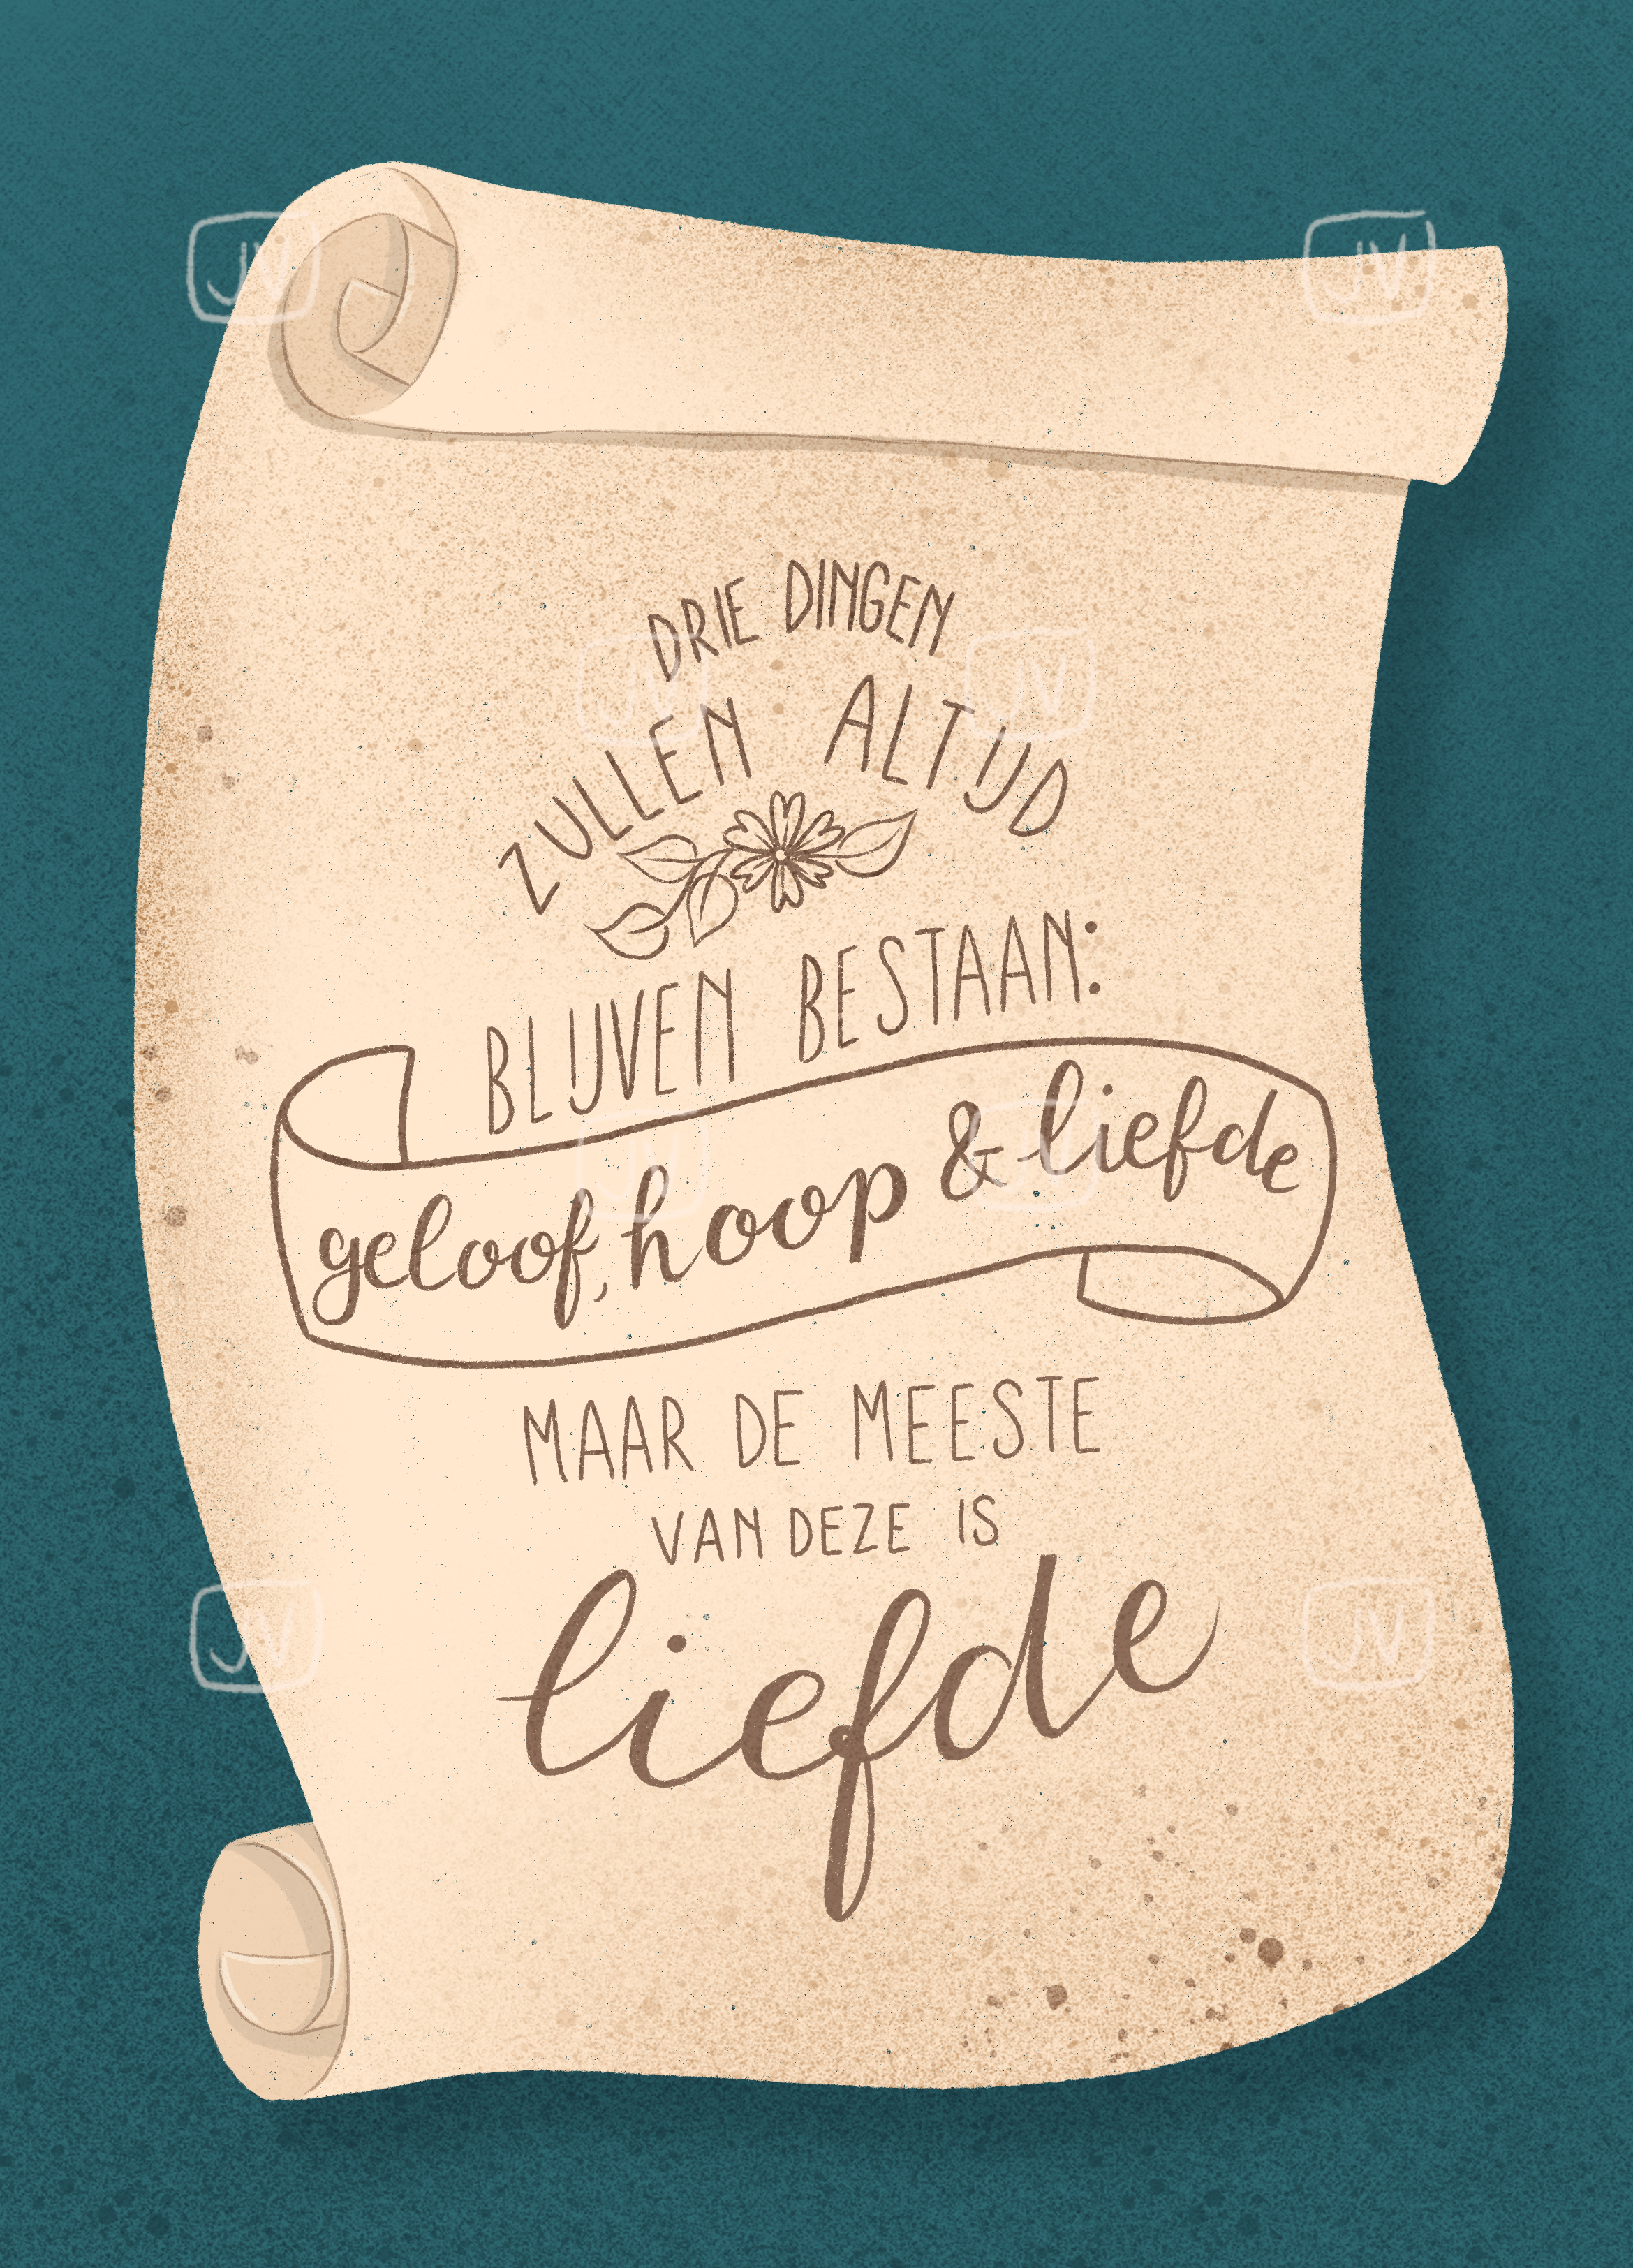 DRIE DINGEN
ZULLEN ALTIJD
BLIJVEN BESTAAN:
geloof, hoop & liefde
MAAR DE MEESTE
VAN DEZE IS
liefde
JV
JV
JV
JV
JV
JV
JV
JV